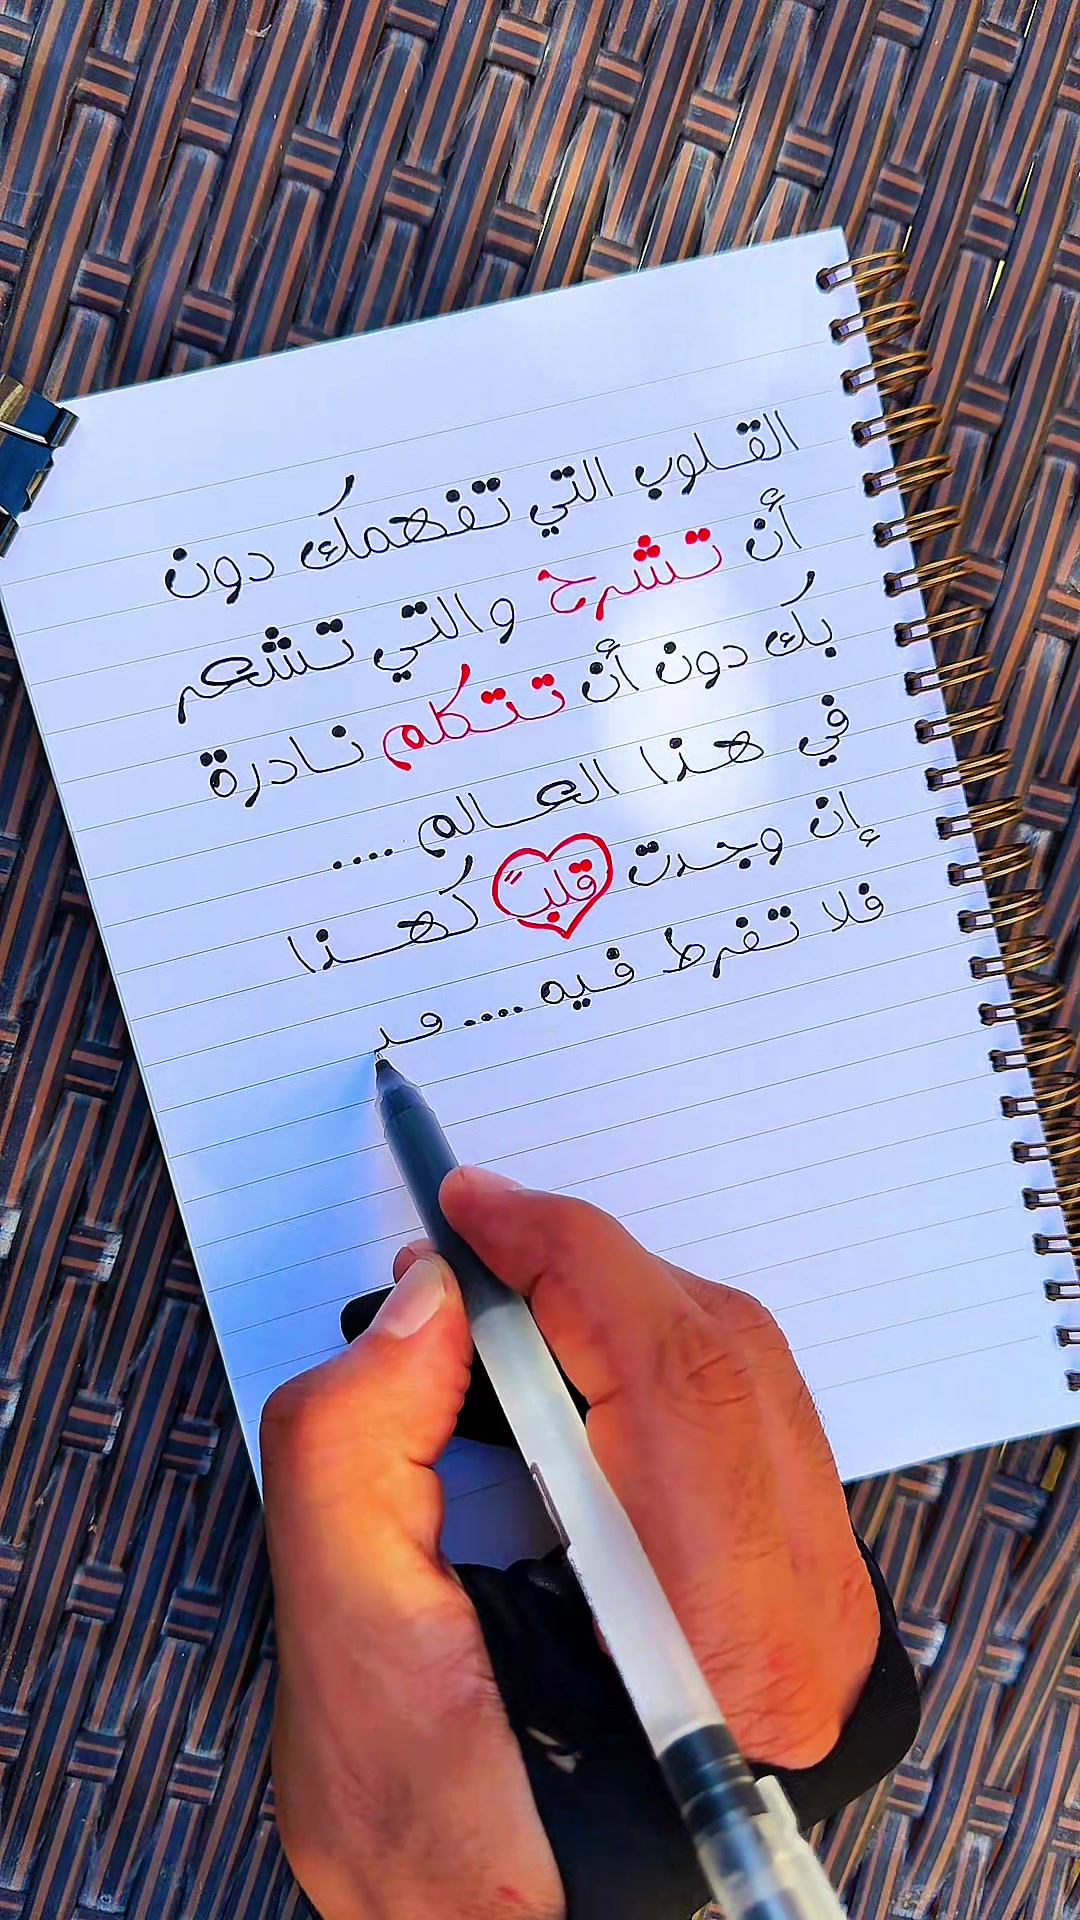 القلوب التي تفهمك دون
أن تشرح والتي تشعر
بك دون أن تتكلم نادرة
في هذا العالم ....
إن وجدت قلبً كهذا
فلا تفرط فيه ....